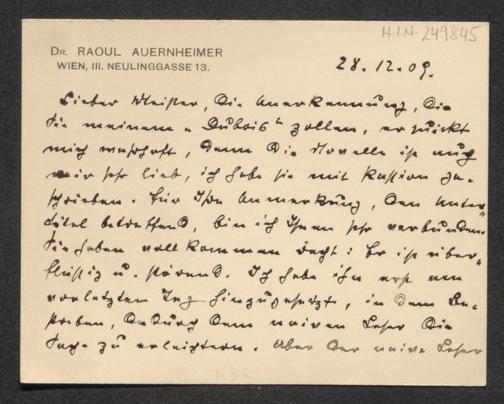 H.I.N. 249845
DR. RAOUL AUERNHEIMER
WIEN, III. NEULINGGASSE 13.
28. 12. 09.
Lieber Meister, die Anerkennung, die
Sie meinem „Dubois“ zollen, erquickt
mich wahrhaft, denn die Novelle ist auch
mir sehr lieb, ich habe sie mit Passion ge-
schrieben. Für Ihre Anmerkung, den Unter-
titel betreffend, bin ich Ihnen sehr verbunden.
Sie haben vollkommen recht: Er ist über-
flüssig u. störend. Ich habe ihn erst am
vorletzten Tag hinzugesetzt, in dem Be-
streben, dadurch dem naiven Leser die
Sache zu erleichtern. Aber der naive Leser